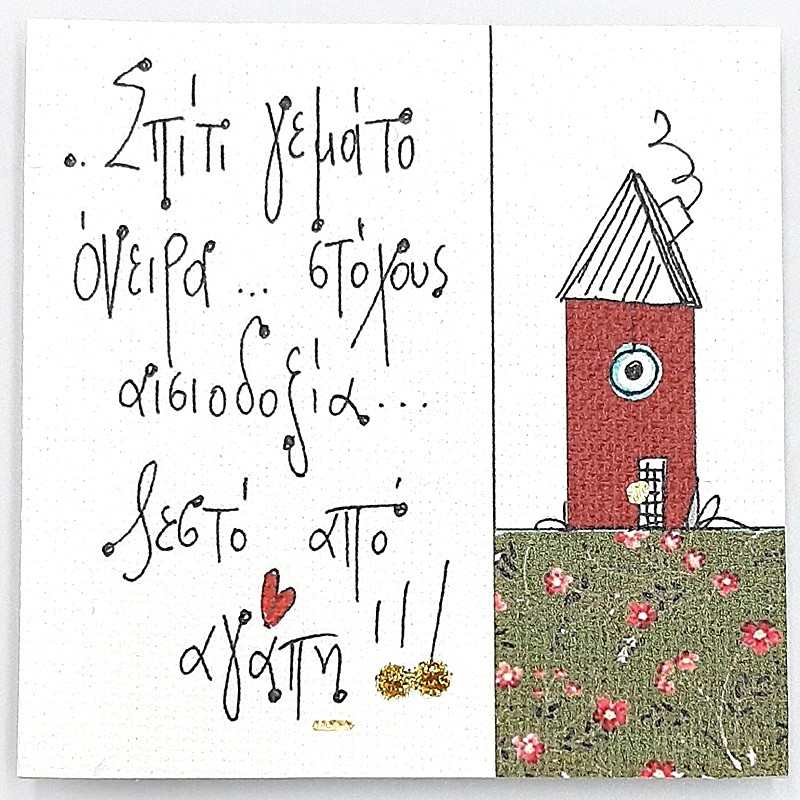 .. Σπίτι γεμάτο
όνειρα ... στόχους
αισιοδοξία...
ζεστό από
αγάπη !!!